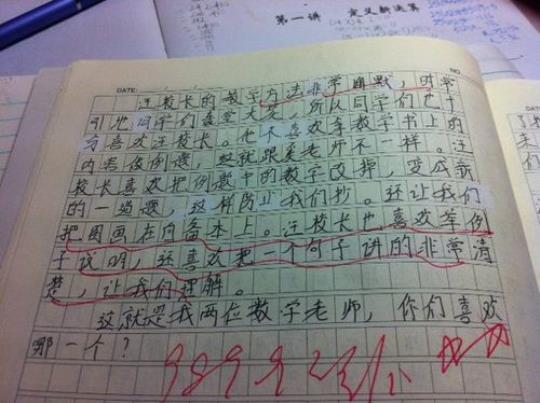 第一讲 定义新运算
DATE: NO
汪校长的教学方法非常幽默，时常
引他同学们哄堂大笑，所以同学们也十
分喜欢汪校长。他不喜欢拿数学书上的
内写后例题，这就跟吴老师不一样。汪
校长喜欢把例题中的数字改掉，变成新
的一道题，这样防止我们抄。还让我们
把图画在自备本上。汪校长也喜欢举例
子说明，还喜欢把一个句子讲的非常清
楚，让我们理解。
这就是我两位数学老师，你们喜欢
哪一个？